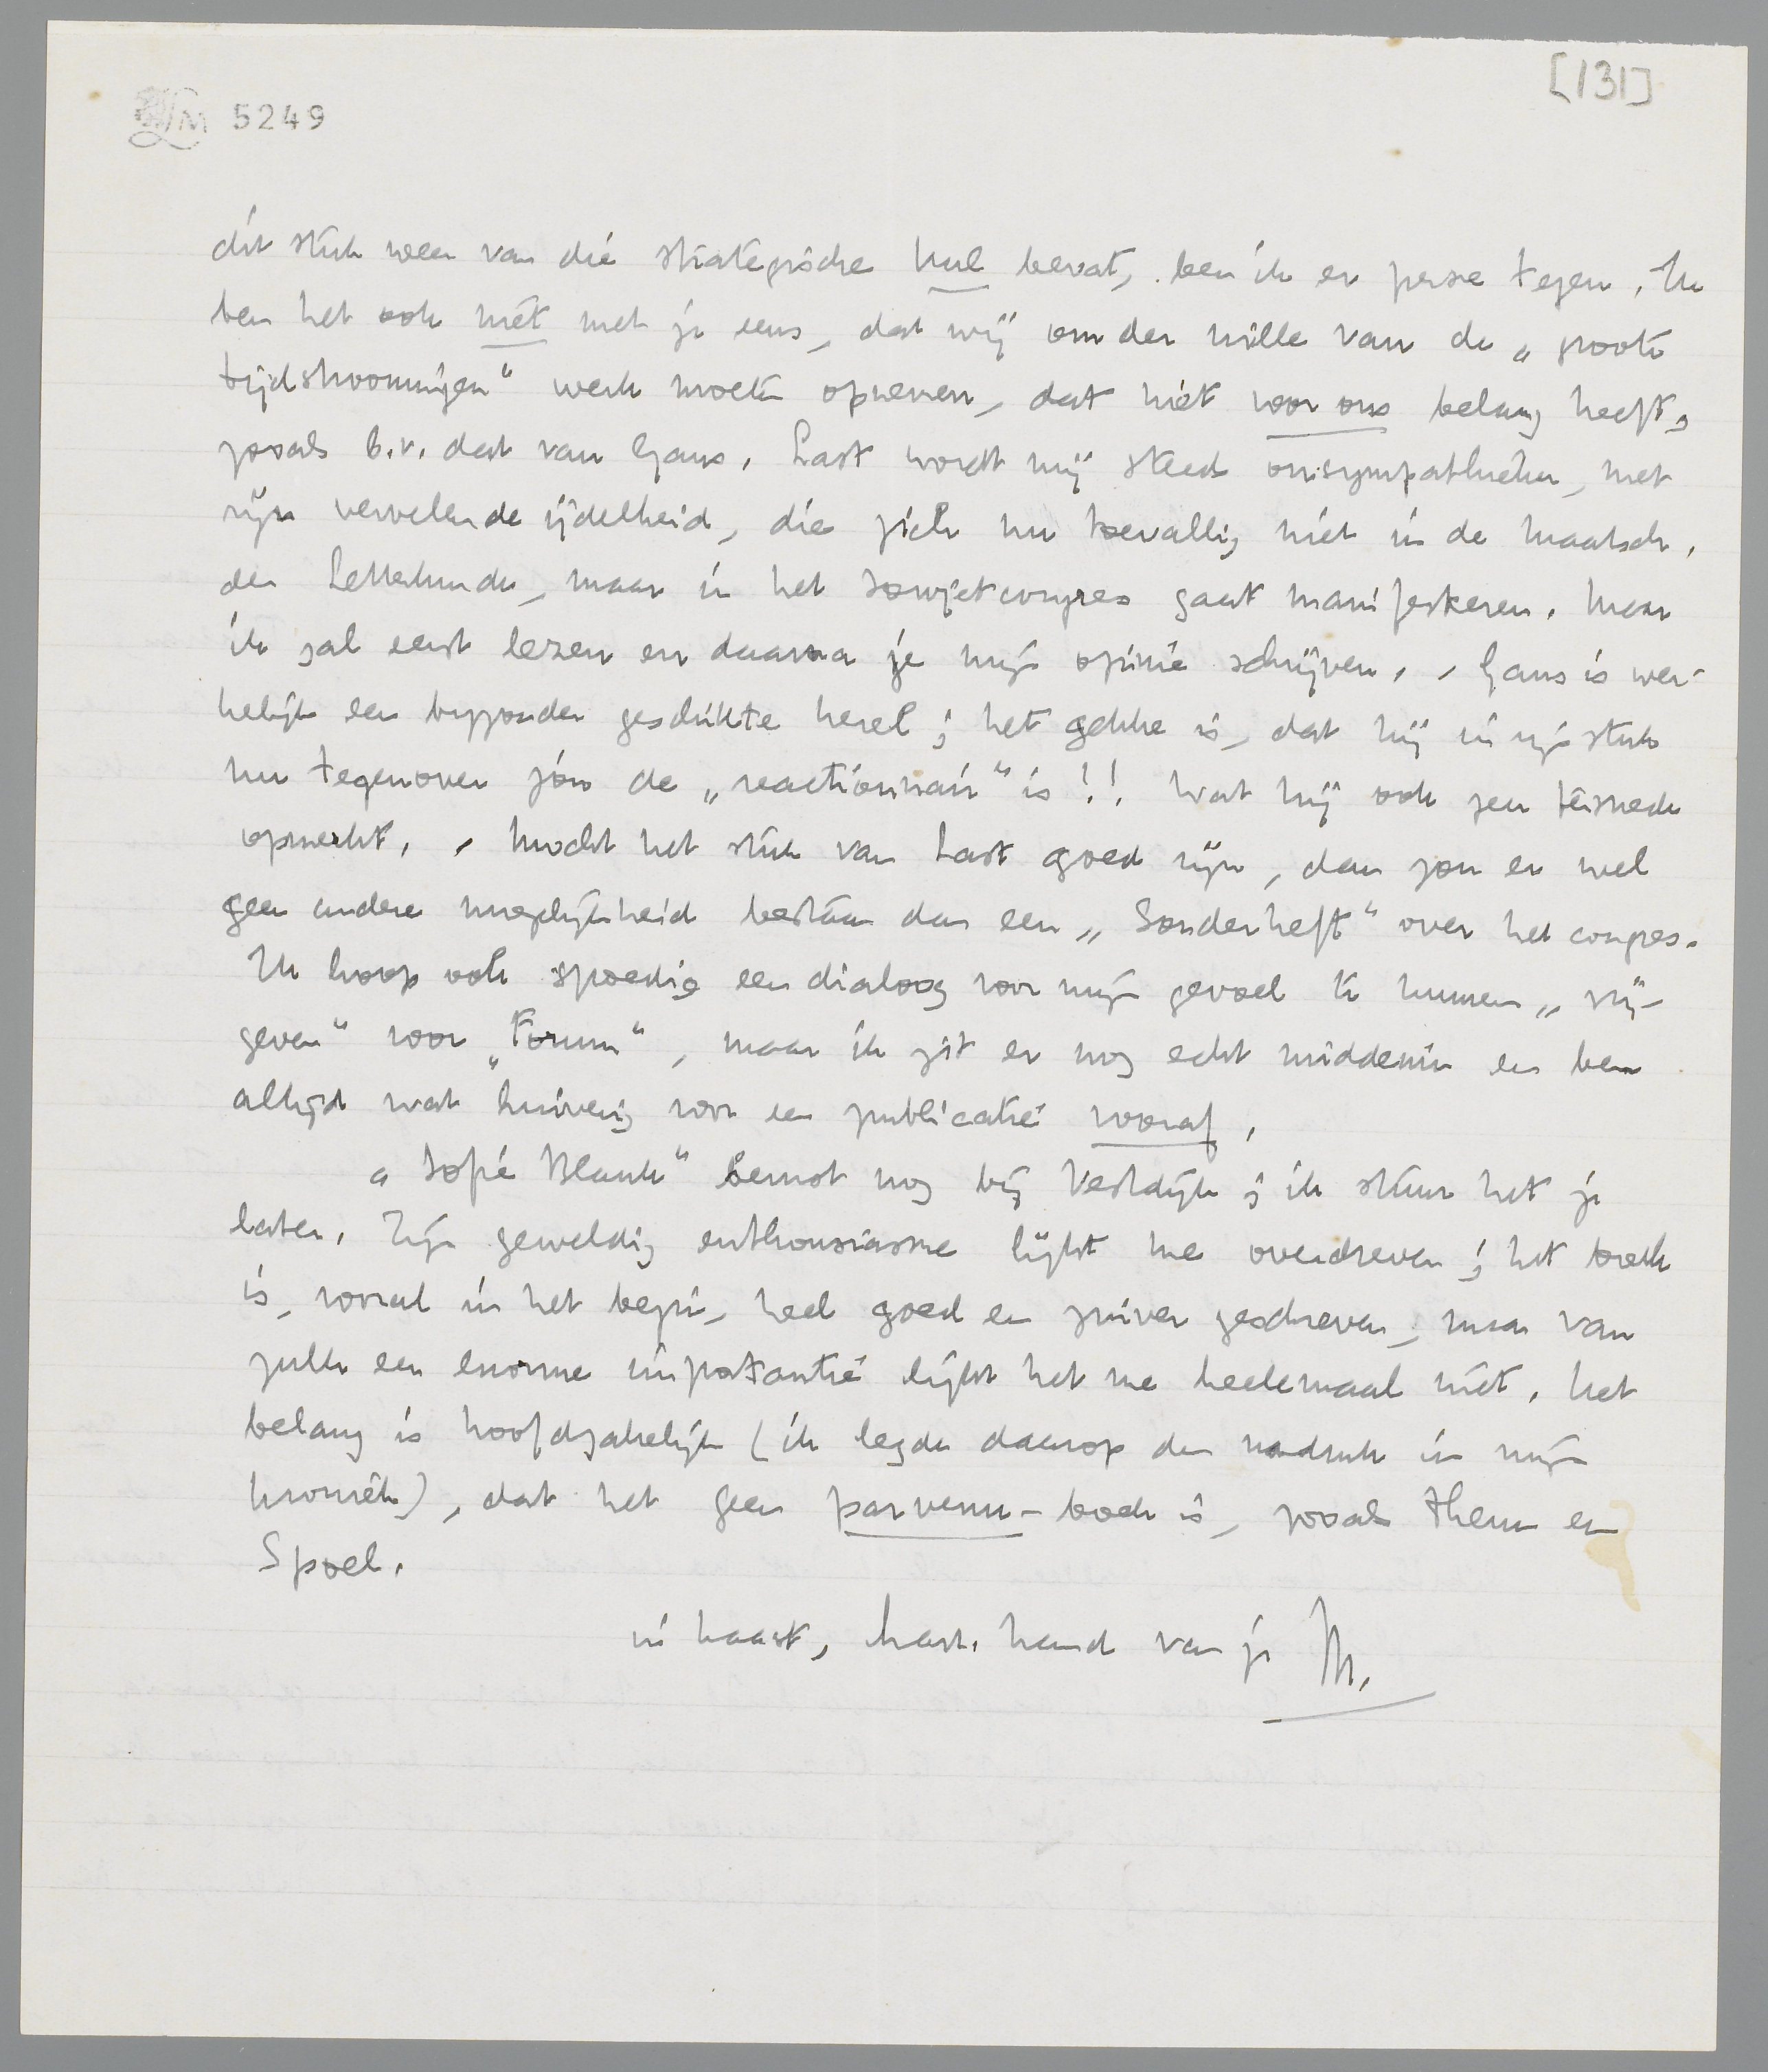 [131]
LM 5249
dit stuk weer van die strategische kul bevat, ben ik er perse tegen. Ik
ben het ook niet met je eens, dat wij om der wille van de „groote
tijdstroomingen” werk moeten opnemen, dat niet voor ons belang heeft,
zooals b.v. dat van Gans. Last wordt mij steeds onsympathieker, met
zijn vervelende ijdelheid, die zich nu toevallig niet in de Maatsch.
der Letterkunde, maar in het Sowjetcongres gaat manifesteeren. Maar
ik zal eerst lezen en daarna je mijn opinie schrijven. - Gans is wer-
kelijk een bijzonder geschikte kerel; het gekke is, dat hij in zijn stuk
nu tegenover jou de „reactionnair” is!! Wat hij ook zeer terneder
opmerkt. - Mocht het stuk van Last goed zijn, dan zou er wel
geen andere mogelijkheid bestaan dan een „Sonderheft” over het congres.
Ik hoop ook spoedig een dialoog voor mijn gevoel te kunnen „vrij-
geven” voor „Forum”, maar ik zit er nog echt middenin en ben
altijd wat huiverig voor een publicatie vooraf.
„Sofie Blank” berust nog bij Vestdijk; ik stuur het je
later. Zijn geweldig enthousiasme lijkt me overdreven; het boek
is, vooral in het begin, heel goed en zuiver geschreven, maar van
zulk een enorme importantie lijkt het me heelemaal niet. Het
belang is hoofdzakelijk (ik legde daarop den nadruk in mijn
kroniek), dat het geen parvenu-boek is, zooals Helm en
Spoel.
in haast, hart. hand van je M.